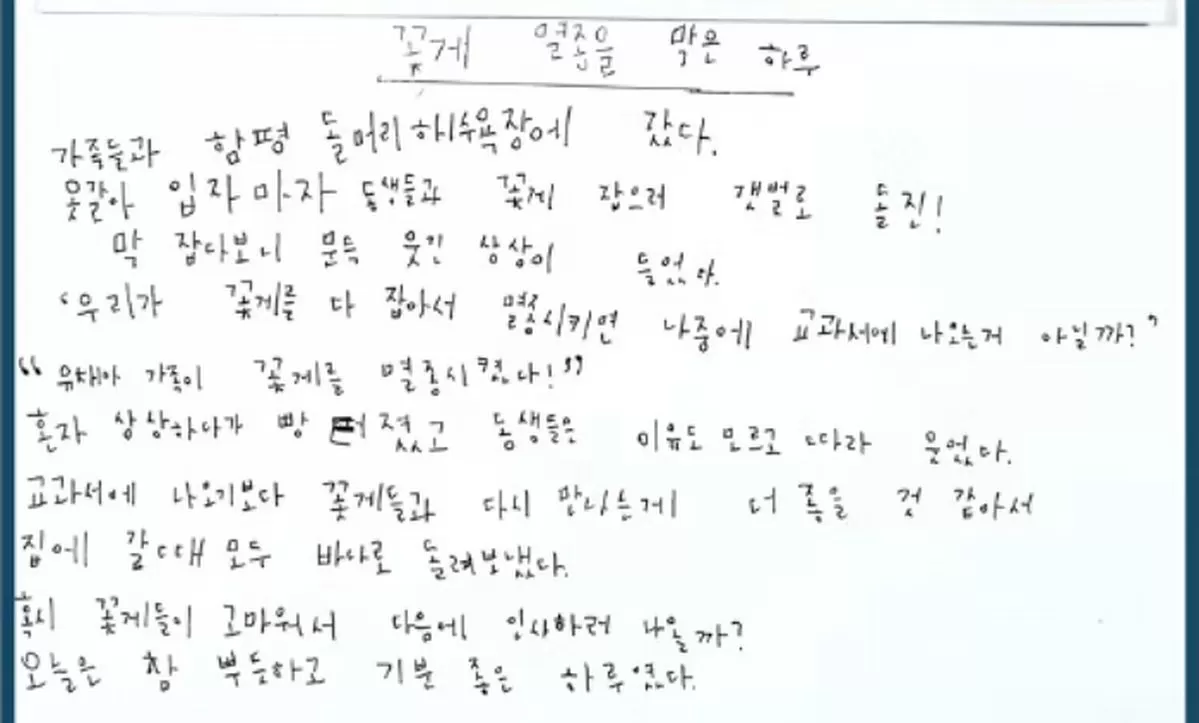 꽃게 멸종을 막은 하루
가족들과 함평 돌머리해수욕장에 갔다.
옷갈아 입자마자 동생들과 꽃게 잡으러 갯벌로 돌진!
막 잡다보니 문득 웃긴 상상이 들었다.
'우리가 꽃게를 다 잡아서 멸종시키면 나중에 교과서에 나오는거 아닐까?'
"유채아 가족이 꽃게를 멸종시켰다!"
혼자 상상하다가 빵 터졌고 동생들은 이유도 모르고 따라 웃었다.
교과서에 나오기보다 꽃게들과 다시 만나는게 더 좋을 것 같아서
집에 갈때 모두 바다로 돌려보냈다.
혹시 꽃게들이 고마워서 다음에 인사하러 나올까?
오늘은 참 뿌듯하고 기분 좋은 하루였다.